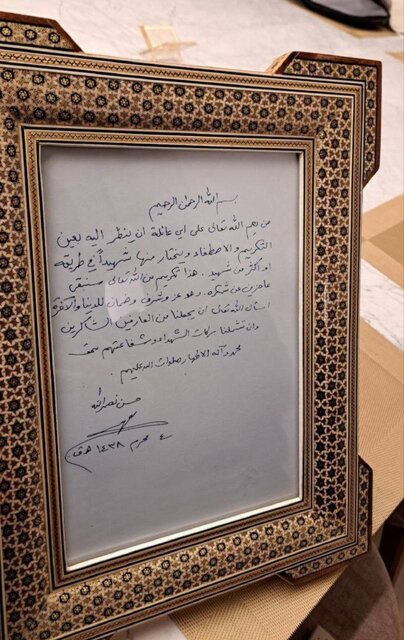 بسم الله الرحمن الرحيم
من نعم الله تعالى على اي عائلة ان ينظر اليه بعين
التكريم والاصطفاء ويختار منها شهيداً في طريقه
او اكثر من شهيد. هذا تكريم من الله تعالى وسنبقى
عاجزين عن شكره. وهو عز وشرف وضمان للدنيا والآخرة
اسأل الله تعالى ان يجعلنا من العارفين الشاكرين
وان تشملنا بركات الشهداء وشفاعتهم بحق
محمد وآله الاطهار صلوات الله عليهم.
حسن نصر الله
٤ محرم ١٤٣٨ هـ ق